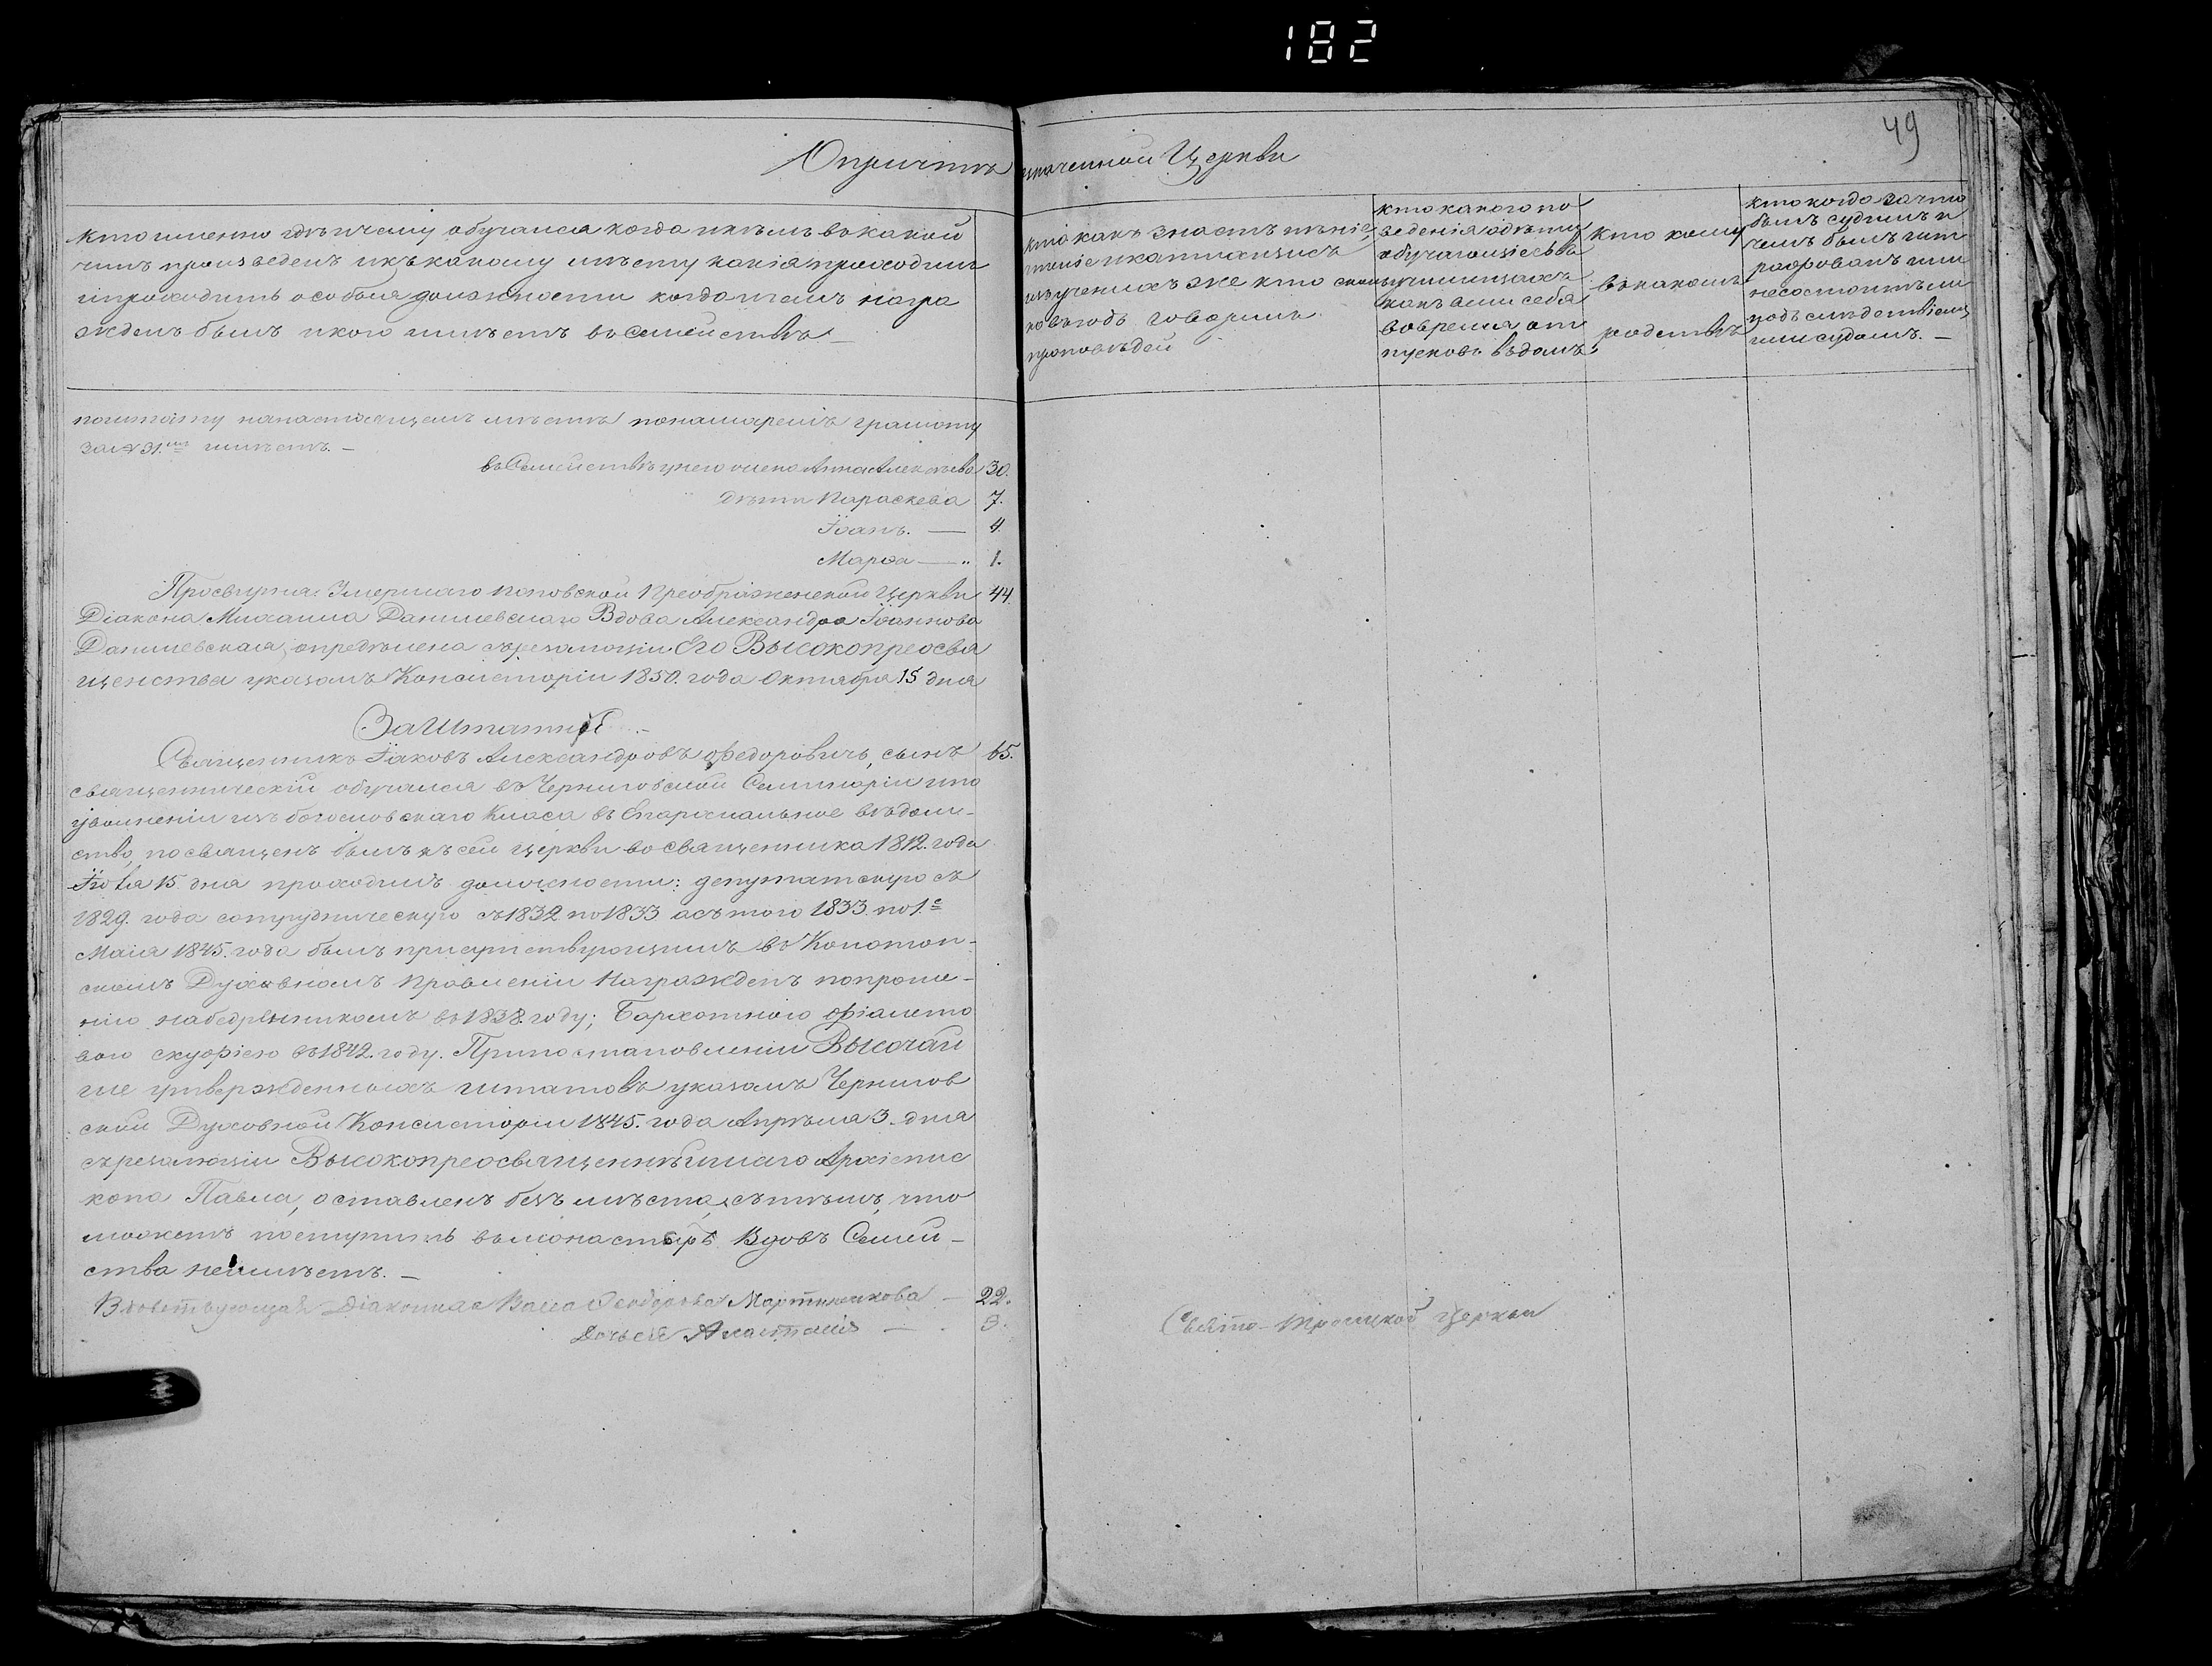 182
49
О причтѣ означенной Церкви
Кто именно гдѣ и чему обучался когда и кѣмъ въ какой
чинъ произведенъ и къ какому мѣсту какія проходилъ
и проходитъ особыя должности когда и чемъ награ
жденъ былъ и кого имѣетъ въ семействѣ. —
кто какъ знаетъ пѣніе,
чтеніе и катихизисъ
изъ ученыхъ же кто сколь
ко въ годъ говорилъ
проповѣдей
кто какого по
веденія и дѣти
обучающіесь въ
училищахъ
какъ вели себя
во время от
пусковъ въ домъ
Кто кому
въ какомъ
родствѣ
кто когда за что
былъ судимъ и
чемъ былъ шт
рафованъ или
не состоитъ ли
подъ слѣдствіемъ
или судомъ. —
по штату на настоящемъ мѣстѣ понамаремъ грамоту
за № 31.мъ имѣетъ. —
въ Семействѣ у него жена Анна Алексѣева 30.
дѣти Параскева 7.
Їоанъ. — 4
Марѳа — „ 1.
Просвирня Умершаго Поповской Преображенской Церкви 44.
Діакона Михаила Данилевскаго Вдова Александра Їоаннова
Данилевская, опредѣлена съ резолюціи Его Высокопреосвя
щенства указомъ Консисторіи 1850. года Октября 15 дня
Заштатный. —
Священникъ Їаковъ Александровъ Ѳедоровичъ, сынъ 65.
священническій обучался въ Черниговской Семинаріи и по
уволненіи изъ богословскаго Класа въ Епархиальное вѣдом-
ство, посвященъ былъ къ сей церкви во священника 1812. года
Їюля 15 дня проходилъ должности: депутатскую съ
1829. года сотрудническую съ 1832 по 1833 а съ того 1833. по 1.е
Маія 1845. года былъ присутствующимъ въ Конотоп-
скомъ Духовномъ Правленіи Награжденъ по проше-
нію набедренникомъ въ 1838. году; Бархатною фіалето
вою скуфіею въ 1842. году. При постановленіи Высочай
ше утвержденныхъ штатовъ указомъ Чернигов
ской Духовной Консисторіи 1845. года Апрѣля 3. дня
съ резалюціи Высокопреосвященнѣйшаго Архіепис
копа Павла, оставленъ безъ мѣста, съ тѣмъ, что
можетъ поступить въ монастырь Вдовъ Семей-
ства не имѣетъ. —
Вдовствующая Діаконица Васса Ѳеодорова — 22.
Дочь ея Анастасія — 3.
Свято-Троицкой Церкви